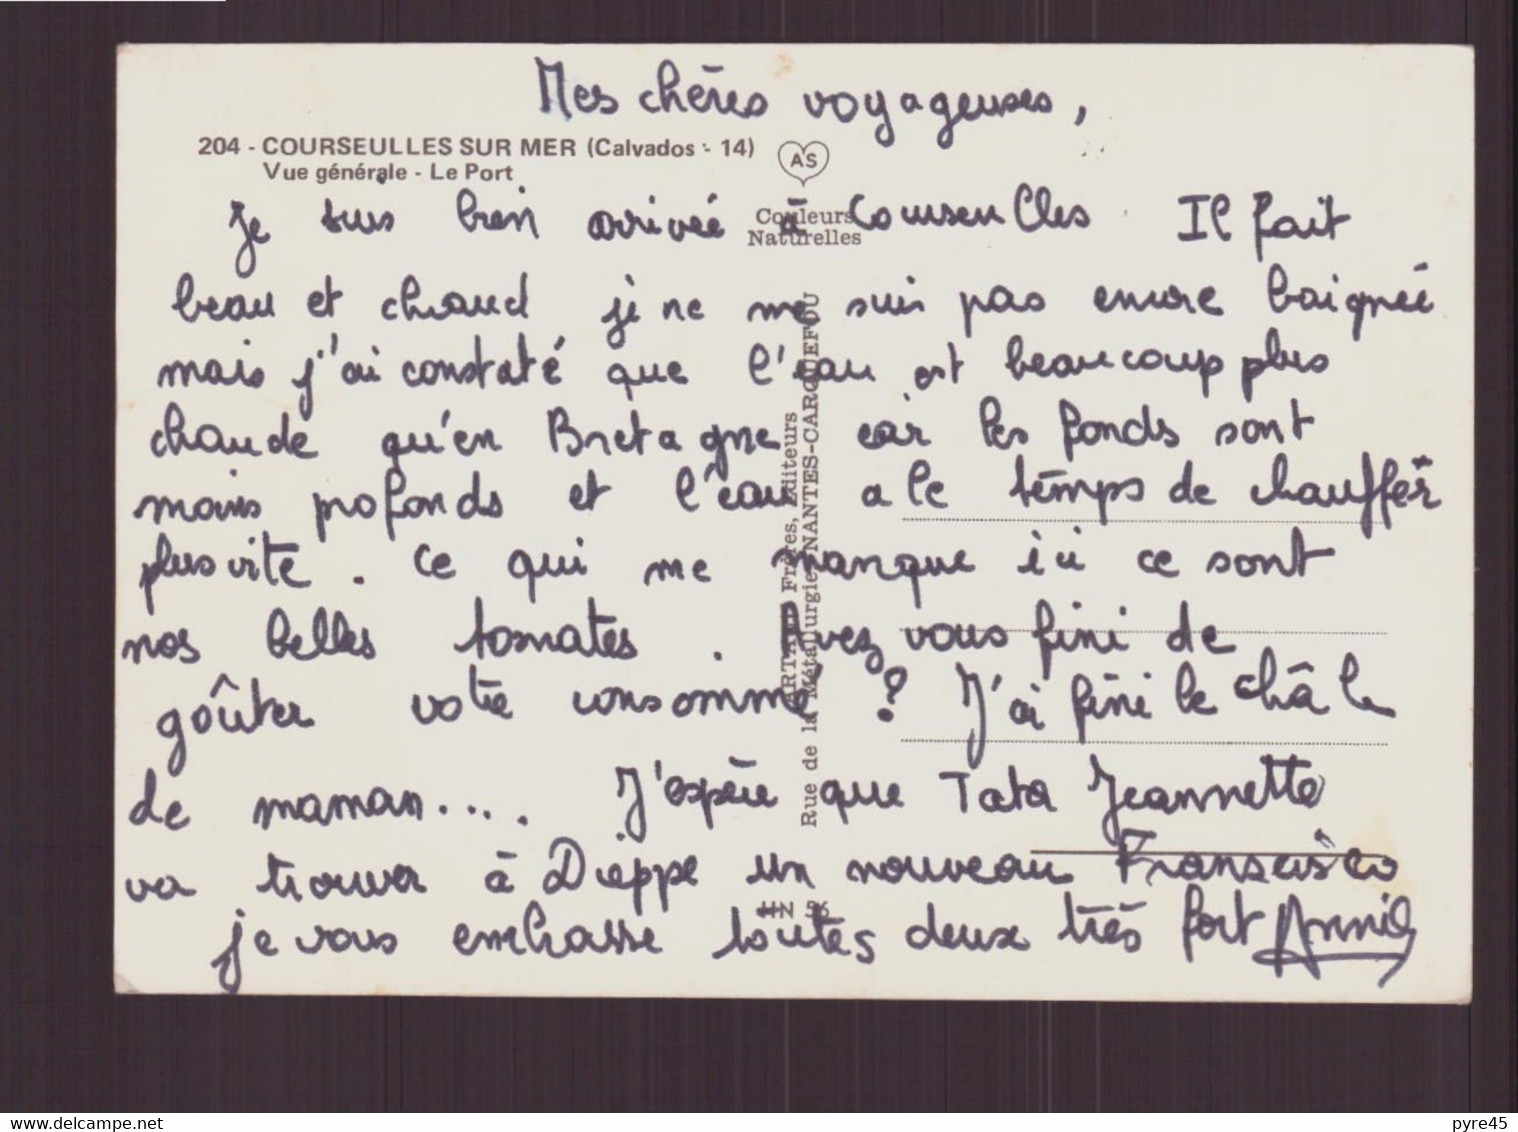 Mes chères voyageuses,
204 - COURSEULLES SUR MER (Calvados - 14)
Vue générale - Le Port
AS
Couleurs
Naturelles
Je suis bien arrivée à Courseulles Il fait
beau et chaud je ne me suis pas encore baignée
mais j'ai constaté que l'eau est beaucoup plus
chaude qu'en Bretagne car les fonds sont
moins profonds et l'eau a le temps de chauffer
plus vite . Ce qui me manque ici ce sont
nos belles tomates . Avez vous fini de
goûter votre consommé ? J'ai fini le châle
de maman.... J'espère que Tata Jeannette
va trouver à Dieppe un nouveau Franscisco
je vous embrasse toutes deux très fort Annie
ARTAUD Frères, Éditeurs
Rue de la Métallurgie NANTES-CARQUEFOU
pyre45